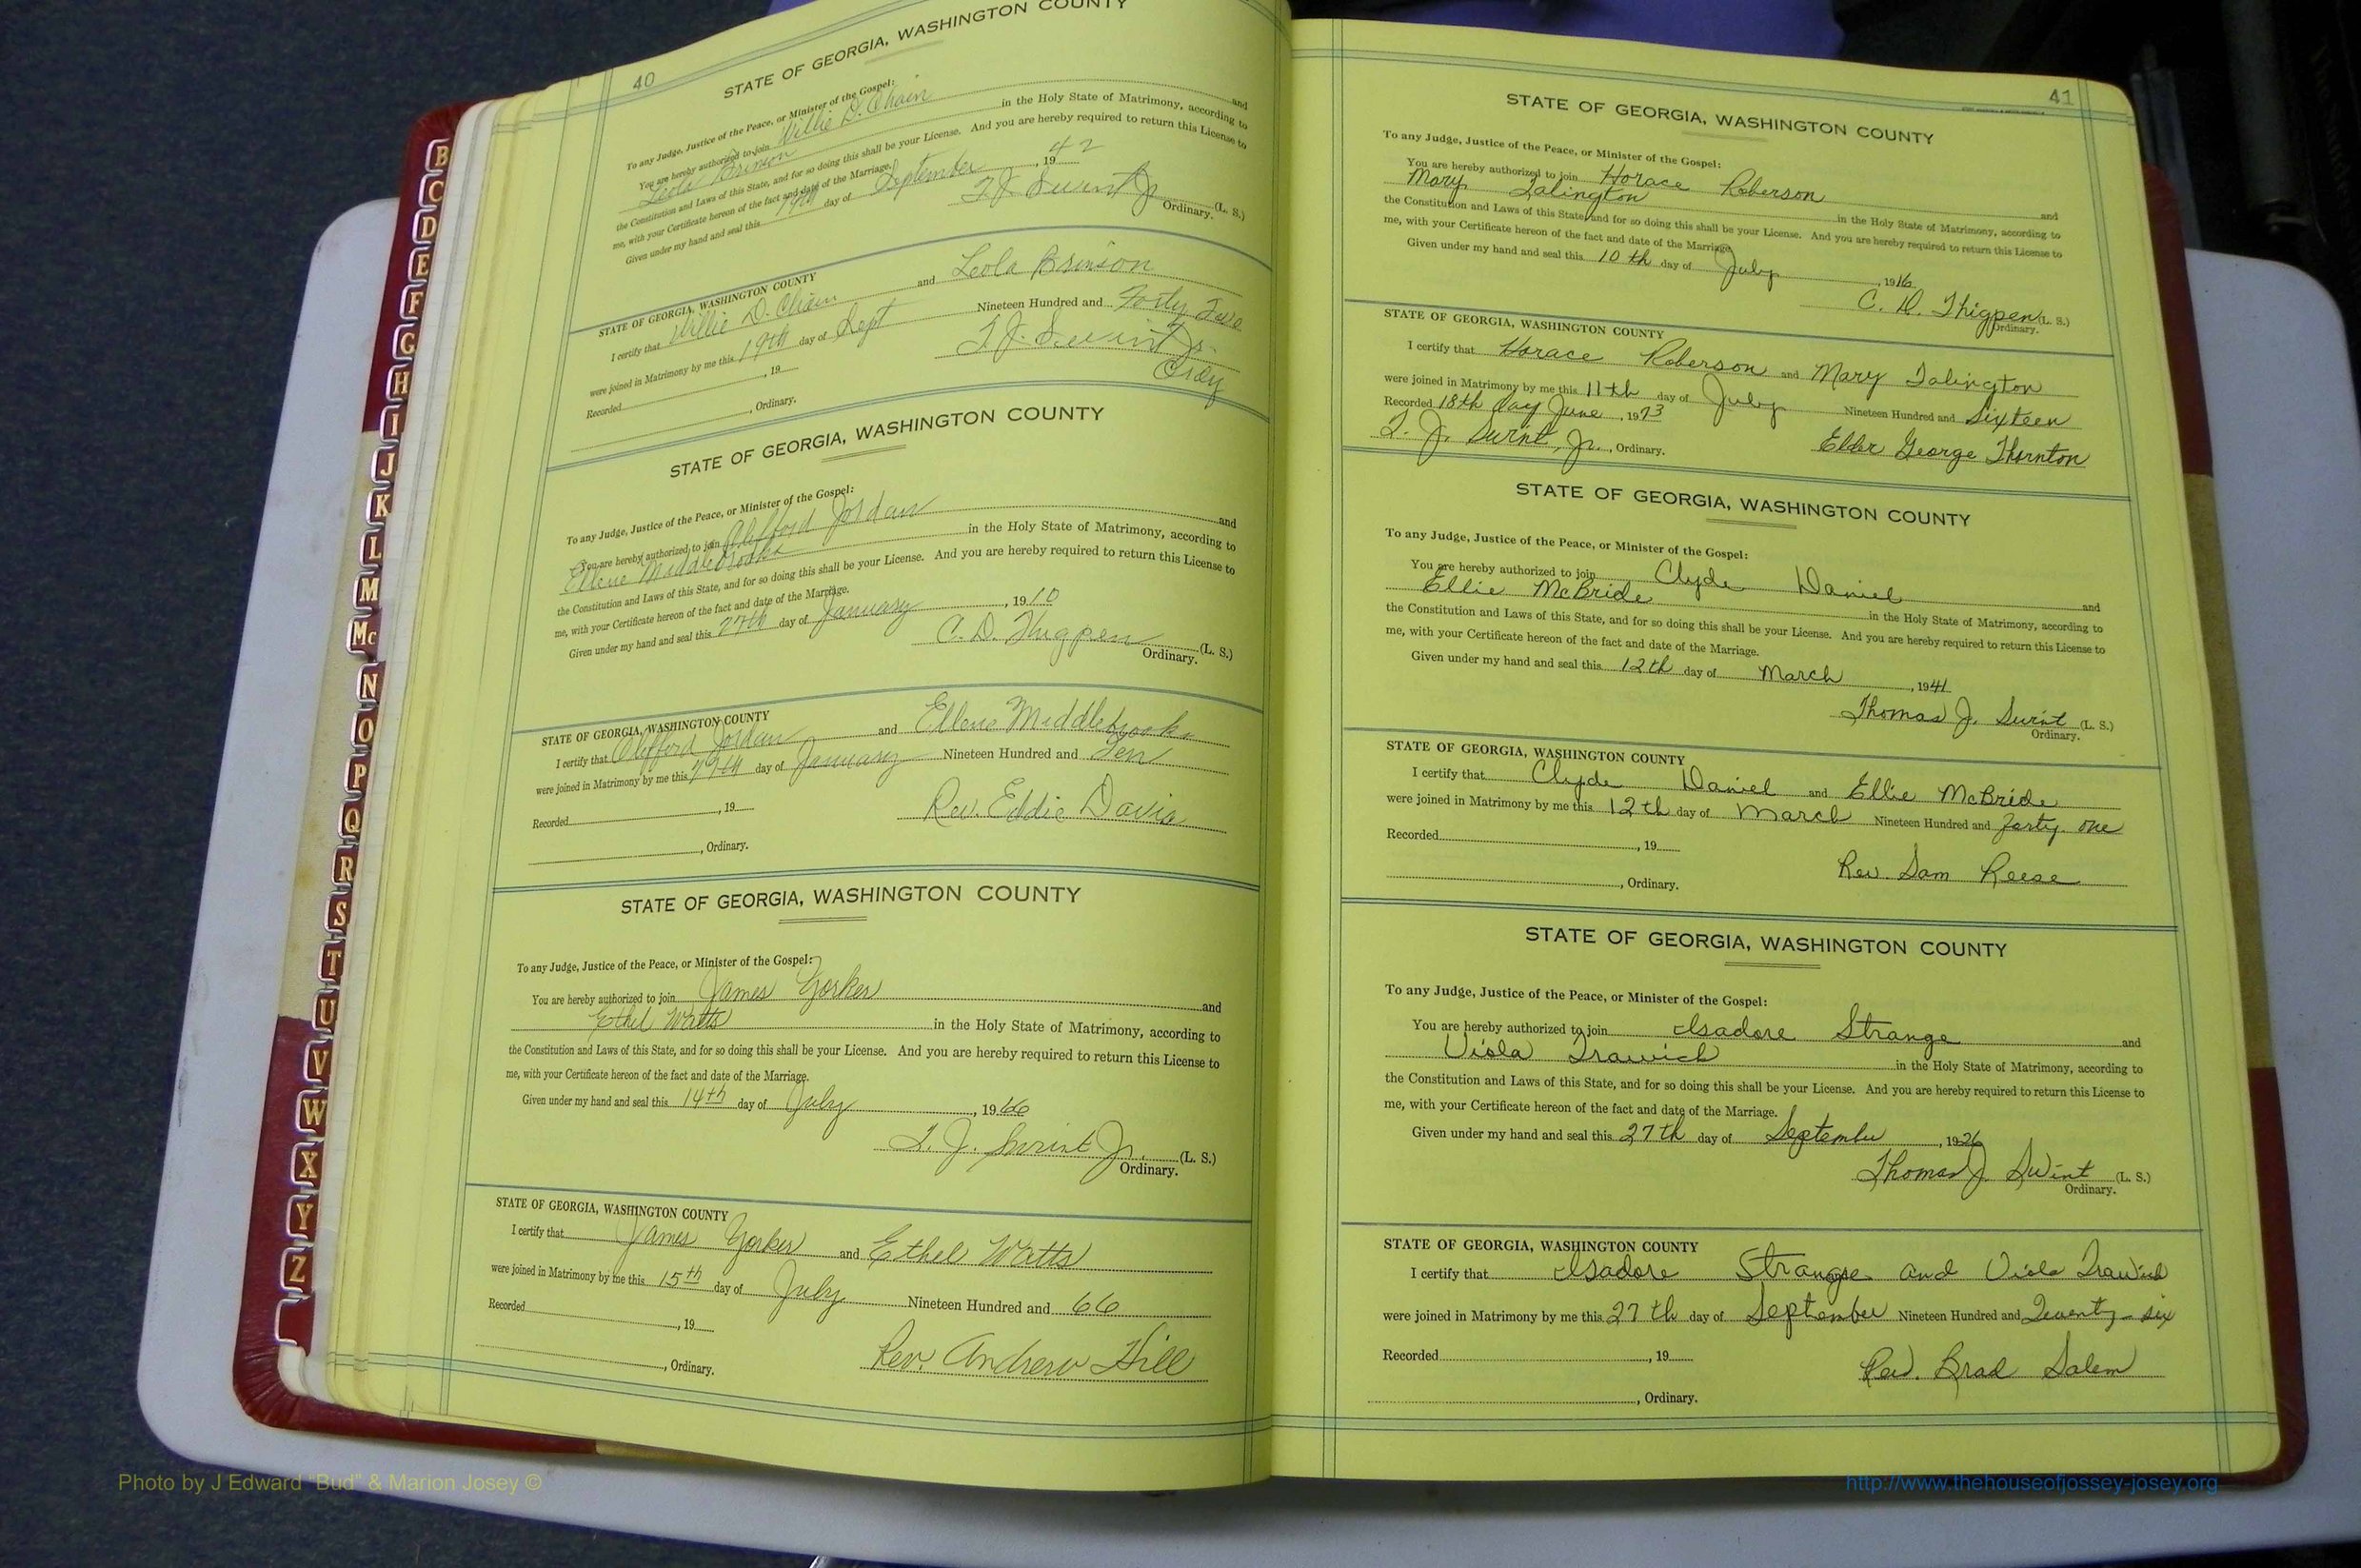 B
C
D
E
F
G
H
I
J
K
L
M
Mc
N
O
P
Q
R
S
T
U
V
W
X
Y
Z
40
STATE OF GEORGIA, WASHINGTON COUNTY
To any Judge, Justice of the Peace, or Minister of the Gospel:
You are hereby authorized to join Willie D. Chain and
Leola Brinson in the Holy State of Matrimony, according to
the Constitution and Laws of this State, and for so doing this shall be your License. And you are hereby required to return this License to
me, with your Certificate hereon of the fact and date of the Marriage.
Given under my hand and seal this 19th day of September, 1942
T. J. Swint Jr. (L. S.)
Ordinary.
STATE OF GEORGIA, WASHINGTON COUNTY
I certify that Willie D. Chain and Leola Brinson
were joined in Matrimony by me this 19th day of Sept Nineteen Hundred and Forty Two
Recorded , 19 T. J. Swint Jr.
, Ordinary. Ordy
STATE OF GEORGIA, WASHINGTON COUNTY
To any Judge, Justice of the Peace, or Minister of the Gospel:
You are hereby authorized to join Clifford Jordan and
Ellene Middlebrooks in the Holy State of Matrimony, according to
the Constitution and Laws of this State, and for so doing this shall be your License. And you are hereby required to return this License to
me, with your Certificate hereon of the fact and date of the Marriage.
Given under my hand and seal this 27th day of January, 1910
C. D. Thigpen (L. S.)
Ordinary.
STATE OF GEORGIA, WASHINGTON COUNTY
I certify that Clifford Jordan and Ellene Middlebrooks
were joined in Matrimony by me this day of January Nineteen Hundred and Ten
Recorded , 19 Rev. Eddie Davis
, Ordinary.
STATE OF GEORGIA, WASHINGTON COUNTY
To any Judge, Justice of the Peace, or Minister of the Gospel:
You are hereby authorized to join James Yorker and
Ethel Watts in the Holy State of Matrimony, according to
the Constitution and Laws of this State, and for so doing this shall be your License. And you are hereby required to return this License to
me, with your Certificate hereon of the fact and date of the Marriage.
Given under my hand and seal this 14th day of July, 1966
T. J. Swint Jr. (L. S.)
Ordinary.
STATE OF GEORGIA, WASHINGTON COUNTY
I certify that James Yorker and Ethel Watts
were joined in Matrimony by me this 15th day of July Nineteen Hundred and 66
Recorded , 19
, Ordinary. Rev. Andrew Hill
41
STATE OF GEORGIA, WASHINGTON COUNTY
To any Judge, Justice of the Peace, or Minister of the Gospel:
You are hereby authorized to join Horace Roberson and
Mary Talington in the Holy State of Matrimony, according to
the Constitution and Laws of this State, and for so doing this shall be your License. And you are hereby required to return this License to
me, with your Certificate hereon of the fact and date of the Marriage.
Given under my hand and seal this 10th day of July, 1916
C. D. Thigpen (L. S.)
Ordinary.
STATE OF GEORGIA, WASHINGTON COUNTY
I certify that Horace Roberson and Mary Talington
were joined in Matrimony by me this 11th day of July Nineteen Hundred and Sixteen
Recorded 18th day June, 1973
T. J. Swint, Jr., Ordinary. Elder George Thornton
STATE OF GEORGIA, WASHINGTON COUNTY
To any Judge, Justice of the Peace, or Minister of the Gospel:
You are hereby authorized to join Clyde Daniel and
Ellie McBride in the Holy State of Matrimony, according to
the Constitution and Laws of this State, and for so doing this shall be your License. And you are hereby required to return this License to
me, with your Certificate hereon of the fact and date of the Marriage.
Given under my hand and seal this 12th day of March, 1941
Thomas J. Swint (L. S.)
Ordinary.
STATE OF GEORGIA, WASHINGTON COUNTY
I certify that Clyde Daniel and Ellie McBride
were joined in Matrimony by me this 12th day of March Nineteen Hundred and forty one
Recorded , 19
, Ordinary. Rev. Sam Reese
STATE OF GEORGIA, WASHINGTON COUNTY
To any Judge, Justice of the Peace, or Minister of the Gospel:
You are hereby authorized to join Isadore Strange and
Viola Trawick in the Holy State of Matrimony, according to
the Constitution and Laws of this State, and for so doing this shall be your License. And you are hereby required to return this License to
me, with your Certificate hereon of the fact and date of the Marriage.
Given under my hand and seal this 27th day of September, 1926
Thomas J. Swint (L. S.)
Ordinary.
STATE OF GEORGIA, WASHINGTON COUNTY
I certify that Isadore Strange and Viola Trawick
were joined in Matrimony by me this 27th day of September Nineteen Hundred and Twenty-six
Recorded , 19 Rev. Brad Salem
, Ordinary.
Photo by J Edward "Bud" & Marion Josey ©
http://www.thehouseofjossey-josey.org